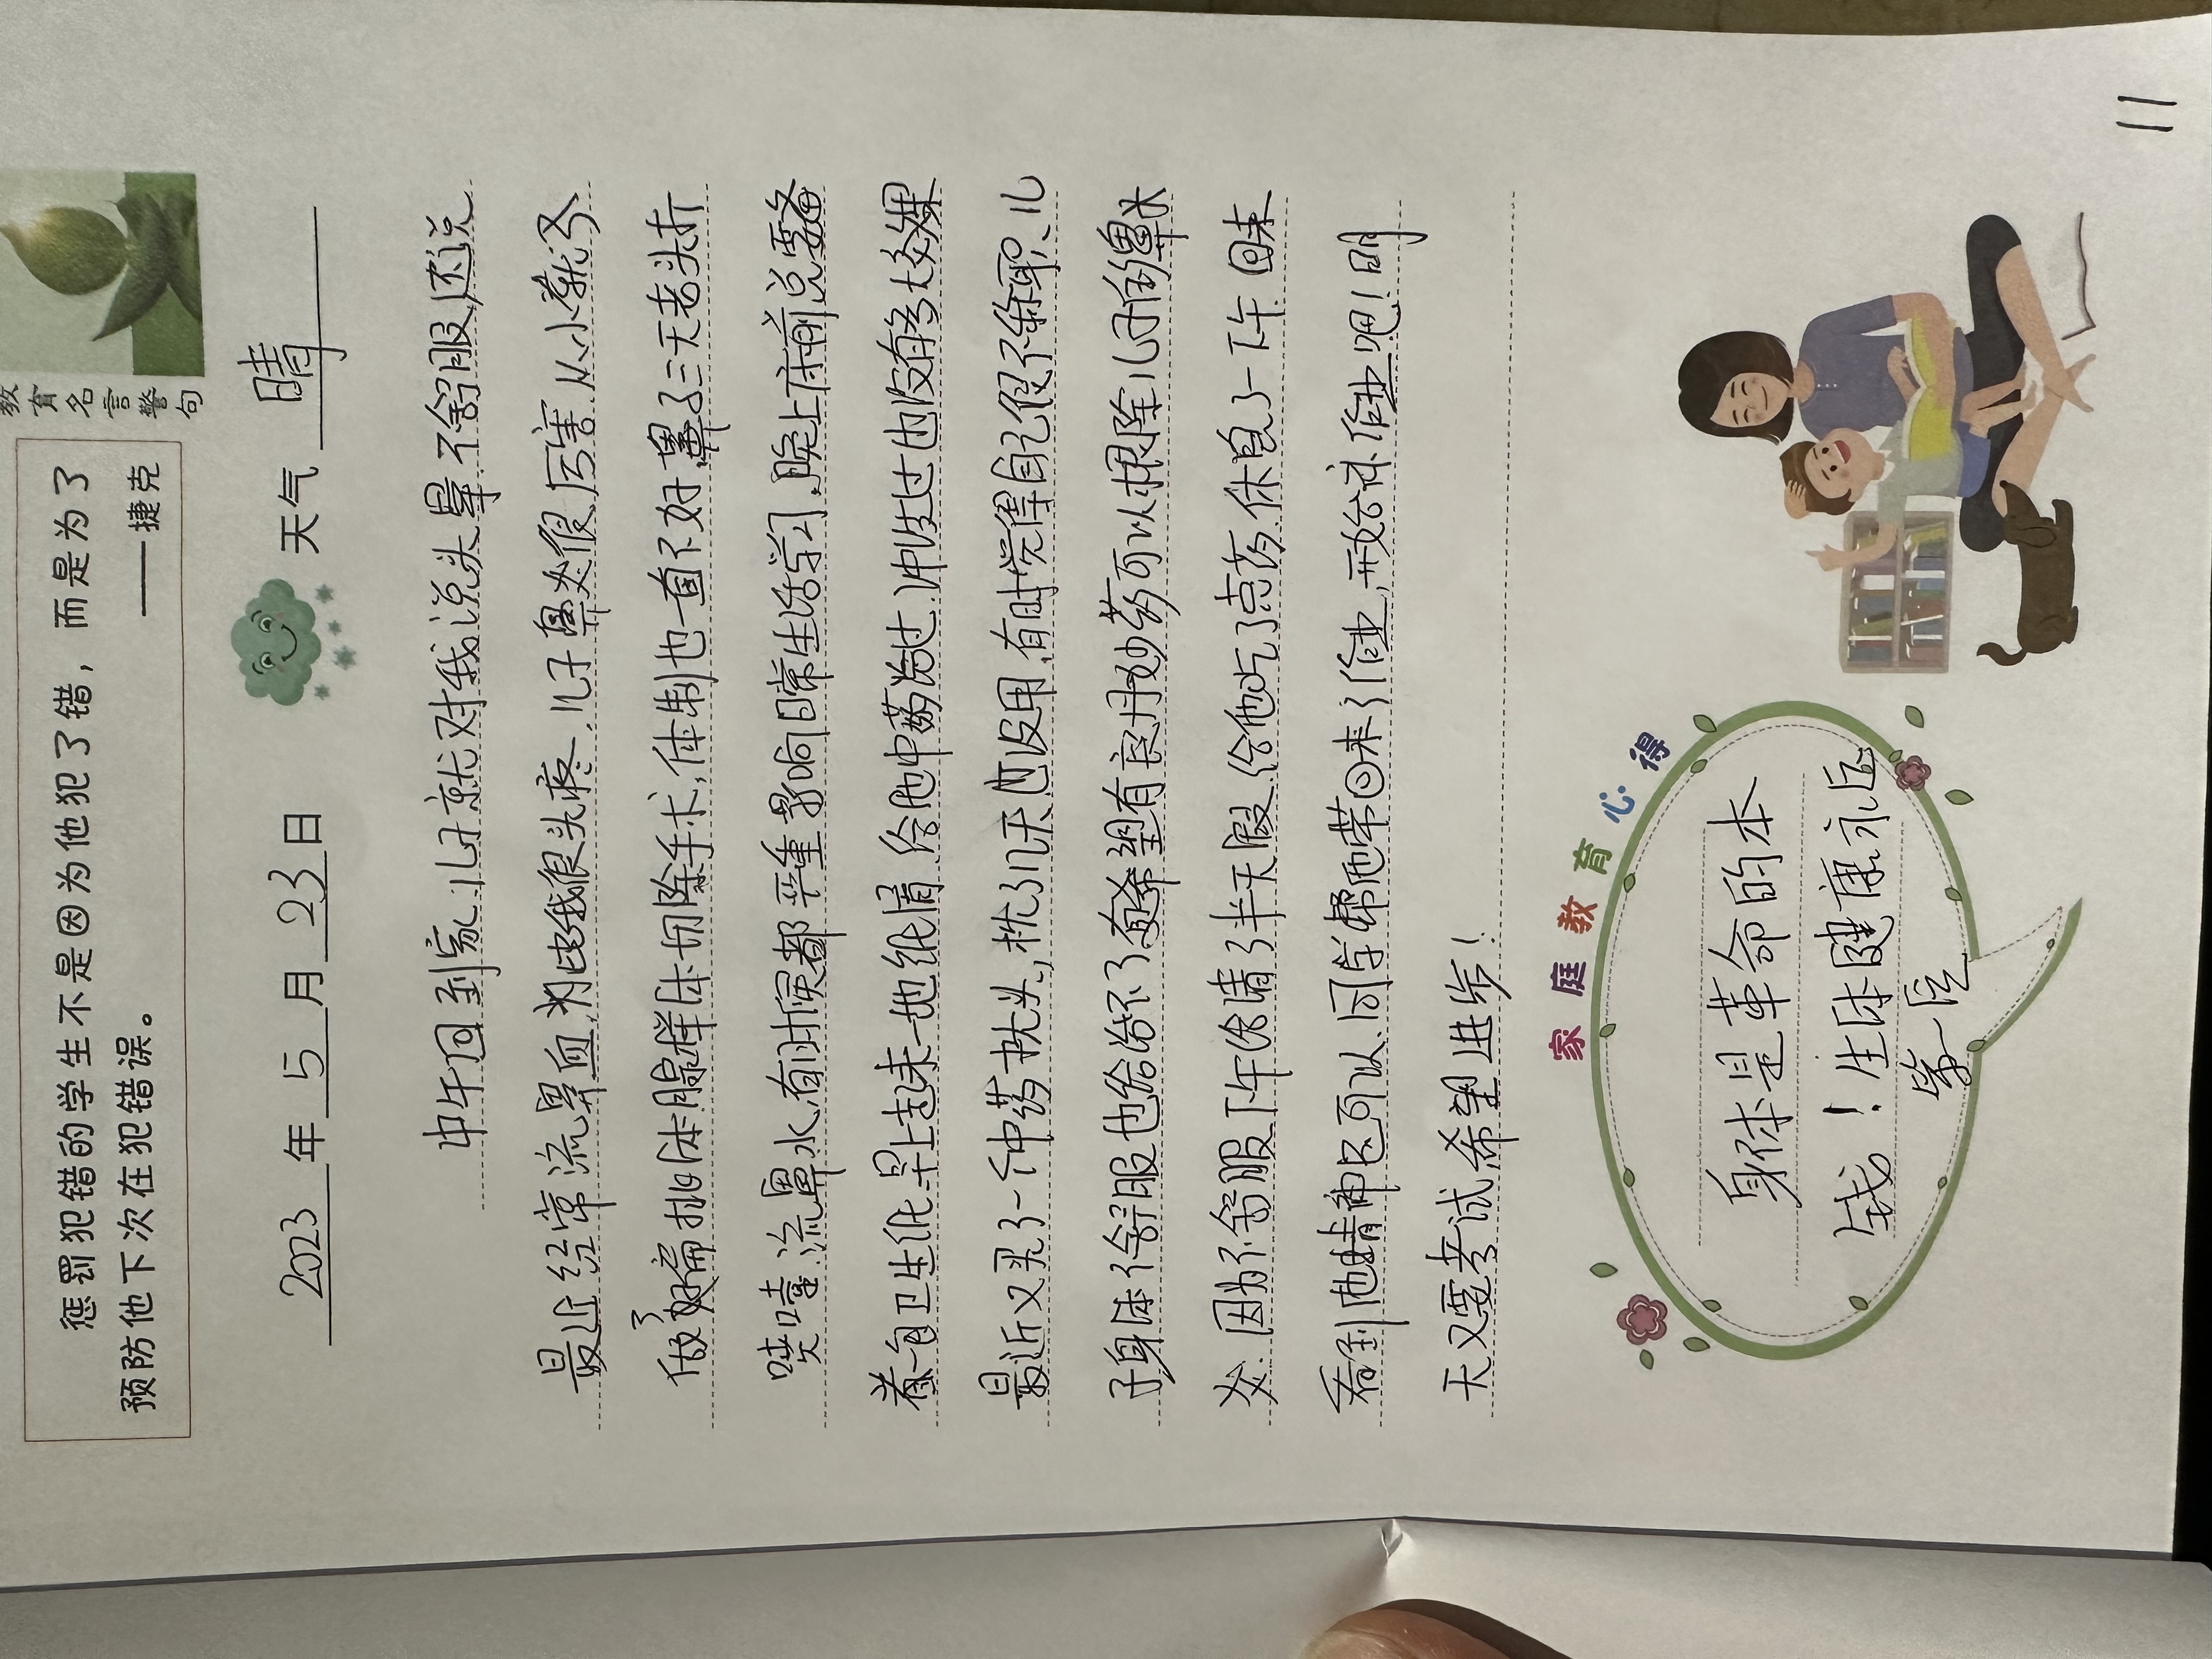 教育名言警句
惩罚犯错的学生不是因为他犯了错，而是为了
预防他下次在犯错误。
——捷克
2023年5月23日 天气 晴
中午回到家，儿子就对我说头晕不舒服，还说
最近经常流鼻血，为此我很头疼，儿子鼻炎很厉害，从小就又
做了扁挑体腺样体切除手术，体制也一直不好，鼻子三天老头折
喷嚏流鼻水，有时候都严重影响日常生活学习，晚上床前说要备
着一包卫生纸，早上起来一地纸屑，给他中药治过，冲洗过也没有多大效果
最近又买了一个中药枕头，枕了几天没反用，有时觉得自己很不称职，儿
子身体不舒服也给治不了，希望有良丹妙药可以根除儿子的鼻
炎，因为不舒服下午给请了半天假，给他吃了点药，休息了一下午，回来
看到他精神还可以，同学帮他带回来了作业，开始补作业吧！明
天又要考试，希望进步！
家庭教育心得
身体是革命的本
钱！身体健康永远
第一位
11